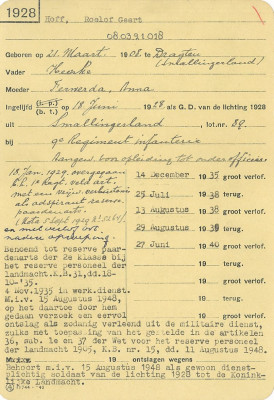 1928
Hoff, Roelof Geert
080391018
Geboren op 21 Maart 1908 te Dragten
(Smallingerland)
Vader
Moeder Ferwerda, Anna
Ingelijfd (v. p.) (b. t.) op 18 Juni 1928. als G. D. van de lichting 1928
uit Smallingerland, lot.nr. 89.
bij 9e Regiment infanterie
Aangew. voor opleiding tot onderofficier
18 Jan. 1929 overgegaan
14 December 1935 groot verlof.
met een vrijw. verbintenis
25 Juli 1938 terug.
als adspirant reserve
paardenarts.
13 Augustus 1938 groot verlof.
29 Augustus 1939 terug.
en met verlof tot
nadere oproeping.
27 Juni 1940 groot verlof.
Benoemd tot reserve paar-
denarts der 2e klasse bij
het reserve personeel der
landmacht.K.B.31,dd.10-
10-'35.
4 Nov.1935 in werk.dienst.
M.i.v. 15 Augustus 1948,
op het daartoe door hem
gedaan verzoek een eervol
19 terug.
19 groot verlof.
19 terug.
19 groot verlof.
19 terug.
ontslag als zodanig verleend uit de militaire dienst,
zulks met toepassing van het gestelde in de artikelen
36, sub. 1e en 37 der Wet voor het reserve personeel
der landmacht 1905, K.B. nr. 15, dd. 11 Augustus 1948.
19 ontslagen wegens
Behoort m.i.v. 15 Augustus 1948 als gewoon dienst-
plichtig soldaat van de lichting 1928 tot de Konink-
lijke Landmacht.